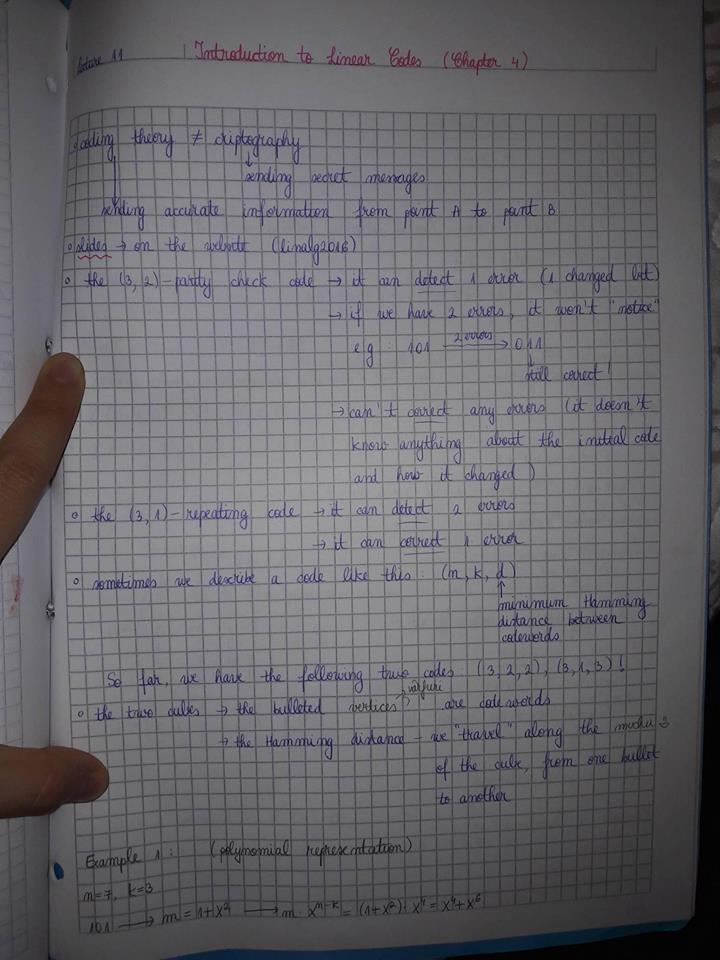 Lecture 11
Introduction to Linear Codes (Chapter 4)
coding theory ≠ criptography
↓
sending secret messages
sending accurate information from point A to point B
slides → on the website (linalg2016)
the (3, 2)-parity check code → it can detect 1 error (1 changed bit)
→ if we have 2 errors, it won't "notice"
eg: 101 2 errors → 011
↓
still correct!
→ can't correct any errors (it doesn't
know anything about the initial code
and how it changed)
the (3, 1)-repeating code → it can detect 2 errors
→ it can correct 1 error
sometimes we describe a code like this: (n, k, d)
↑
minimum Hamming
distance between
codewords
So far, we have the following two codes: (3, 2, 2), (3, 1, 3)!
vârfuri
the two cubes → the bulleted vertices? are codewords
→ the Hamming distance - we "travel" along the muchii
of the cube, from one bullet
to another
Example 1: (polynomial representation)
n=7, k=3
101 → m = 1+X² → m·Xⁿ⁻ᵏ = (1+X²)·X⁴ = X⁴+X⁶